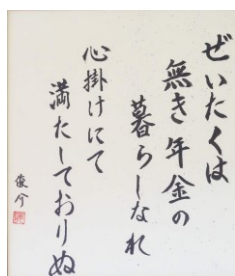 ぜいたくは
無き年金の
暮らしなれ
心掛けにて
満たしておりぬ